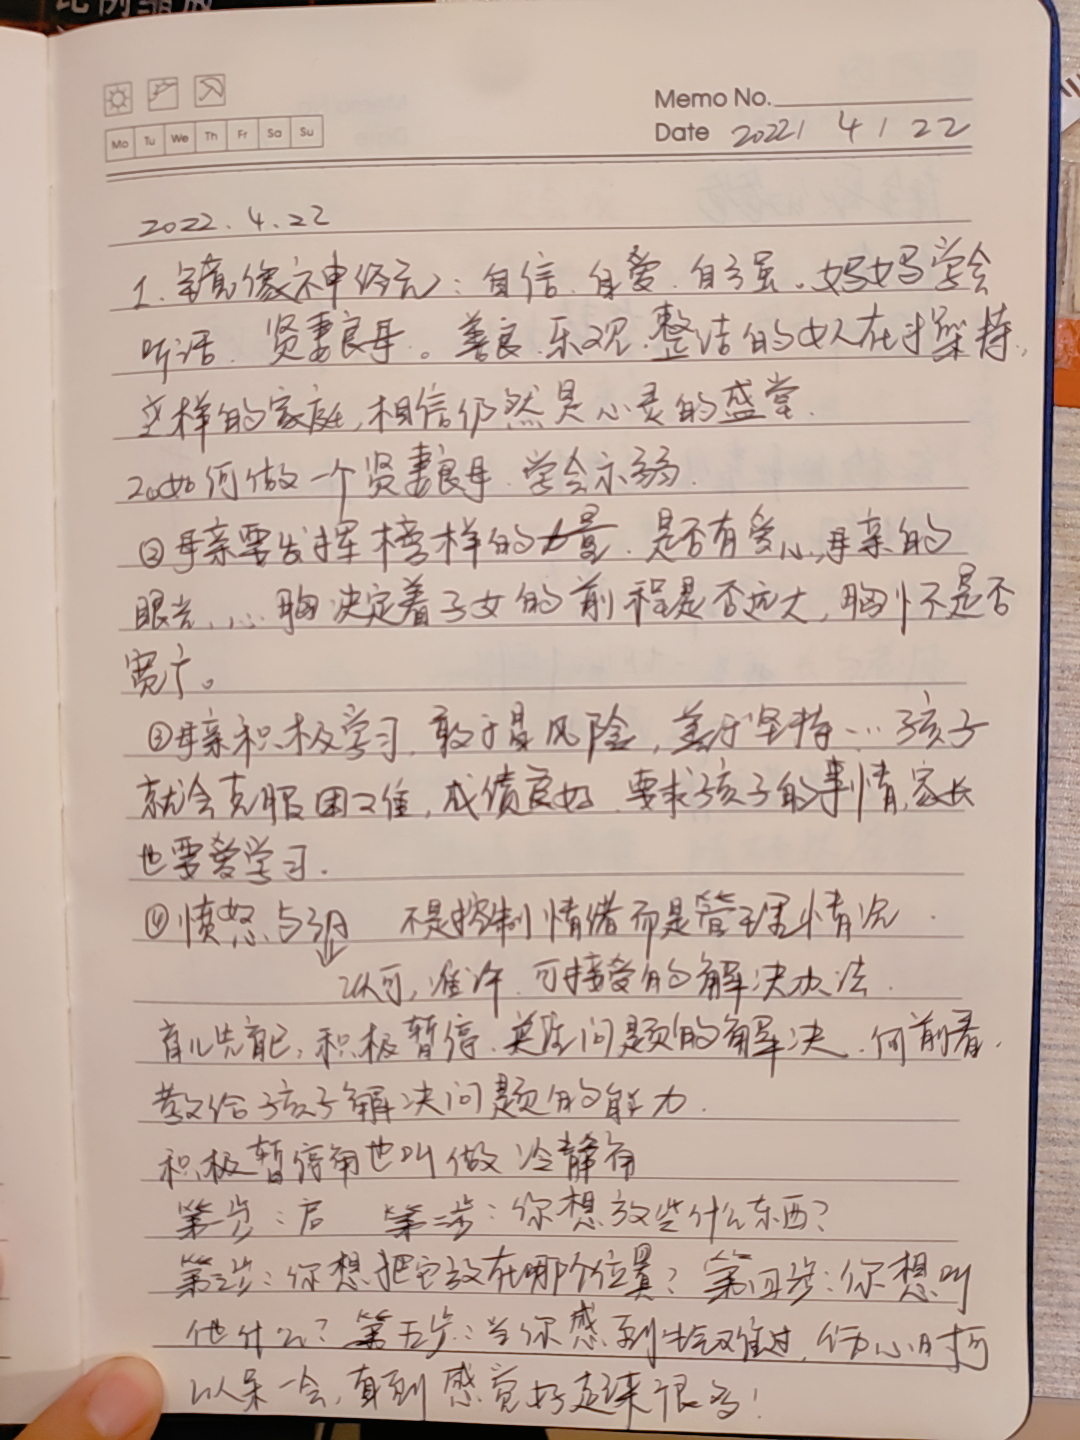 比例缩放
Memo No.
Mo Tu We Th Fr Sa Su
Date 2022/ 4 / 22
2022.4.22
1.镜像神经元：自信.自爱.自强。妈妈学会
听话.贤妻良母。善良.乐观.整洁的女人在才坚持,
这样的家庭,相信仍然是心灵的盛堂.
2.如何做一个贤妻良母.学会示弱.
②母亲要发挥榜样的力量.是否有爱心,母亲的
眼光,心胸决定着子女的前程是否远大,胸怀是否
宽广。
③母亲积极学习,敢于冒风险,善于坚持…孩子
就会克服困难,成绩良好.要求孩子的事情,家长
也要爱学习.
④愤怒与 不是控制情绪而是管理情况.
认可,准许.可接受的解决办法.
育儿先育己,积极暂停.关注问题的解决.向前看.
教给孩子解决问题的能力.
积极暂停角也叫做冷静角
第一步：启 第二步：你想放些什么东西?
第三步：你想把它放在哪个位置? 第四步：你想叫
他什么? 第五步：当你感到生气难过,伤心时可
以呆一会,直到感觉好起来很多!